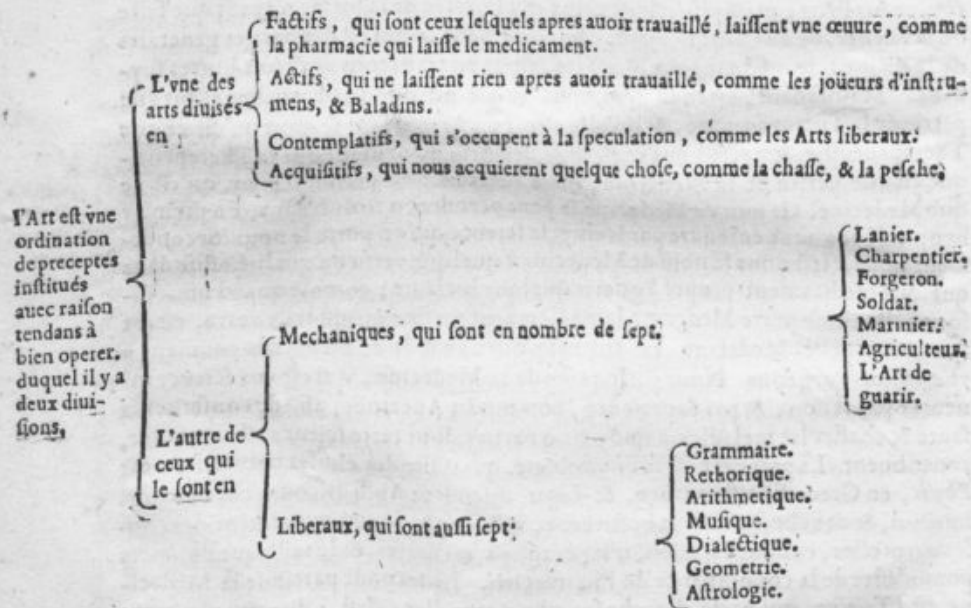 l'Art est vne
ordination
de preceptes
institués
auec raison
tendans à
bien operer,
duquel il y a
deux diui-
sions,
L'vne des
arts diuisés
en
Factifs, qui sont ceux lesquels apres auoir trauaillé, laissent vne œuure, comme
la pharmacie qui laisse le medicament.
Actifs, qui ne laissent rien apres auoir trauaillé, comme les joüeurs d'instru-
mens, & Baladins.
Contemplatifs, qui s'occupent à la speculation, comme les Arts liberaux.
Acquisitifs, qui nous acquierent quelque chose, comme la chasse, & la pesche.
L'autre de
ceux qui
le font en
Mechaniques, qui sont en nombre de sept,
Lanier.
Charpentier.
Forgeron.
Soldat.
Marinier.
Agriculteur.
L'Art de
guarir.
Liberaux, qui sont aussi sept,
Grammaire.
Rethorique.
Arithmetique.
Musique.
Dialectique.
Geometrie.
Astrologie.